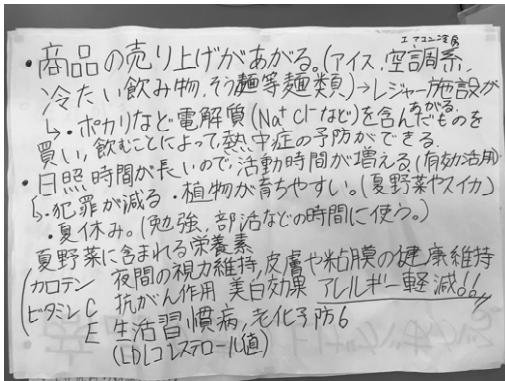 エアコン冷房
・商品の売り上げがあがる。(アイス、空調系、
冷たい飲み物、そう麺等麺類)→レジャー施設が
あがる。
↳・ポカリなど電解質(Na⁺Cl⁻など)を含んだものを
買い、飲むことによって、熱中症の予防ができる。
・日照時間が長いので、活動時間が増える(有効活用)
↳・犯罪が減る ・植物が育ちやすい。(夏野菜やスイカ)
・夏休み。(勉強、部活などの時間に使う。)
夏野菜に含まれる栄養素
(カロテン 夜間の視力維持,皮膚や粘膜の健康維持
ビタミンC 抗がん作用 美白効果 アレルギー軽減!!
E 生活習慣病,老化予防6
(LDLコレステロール値)